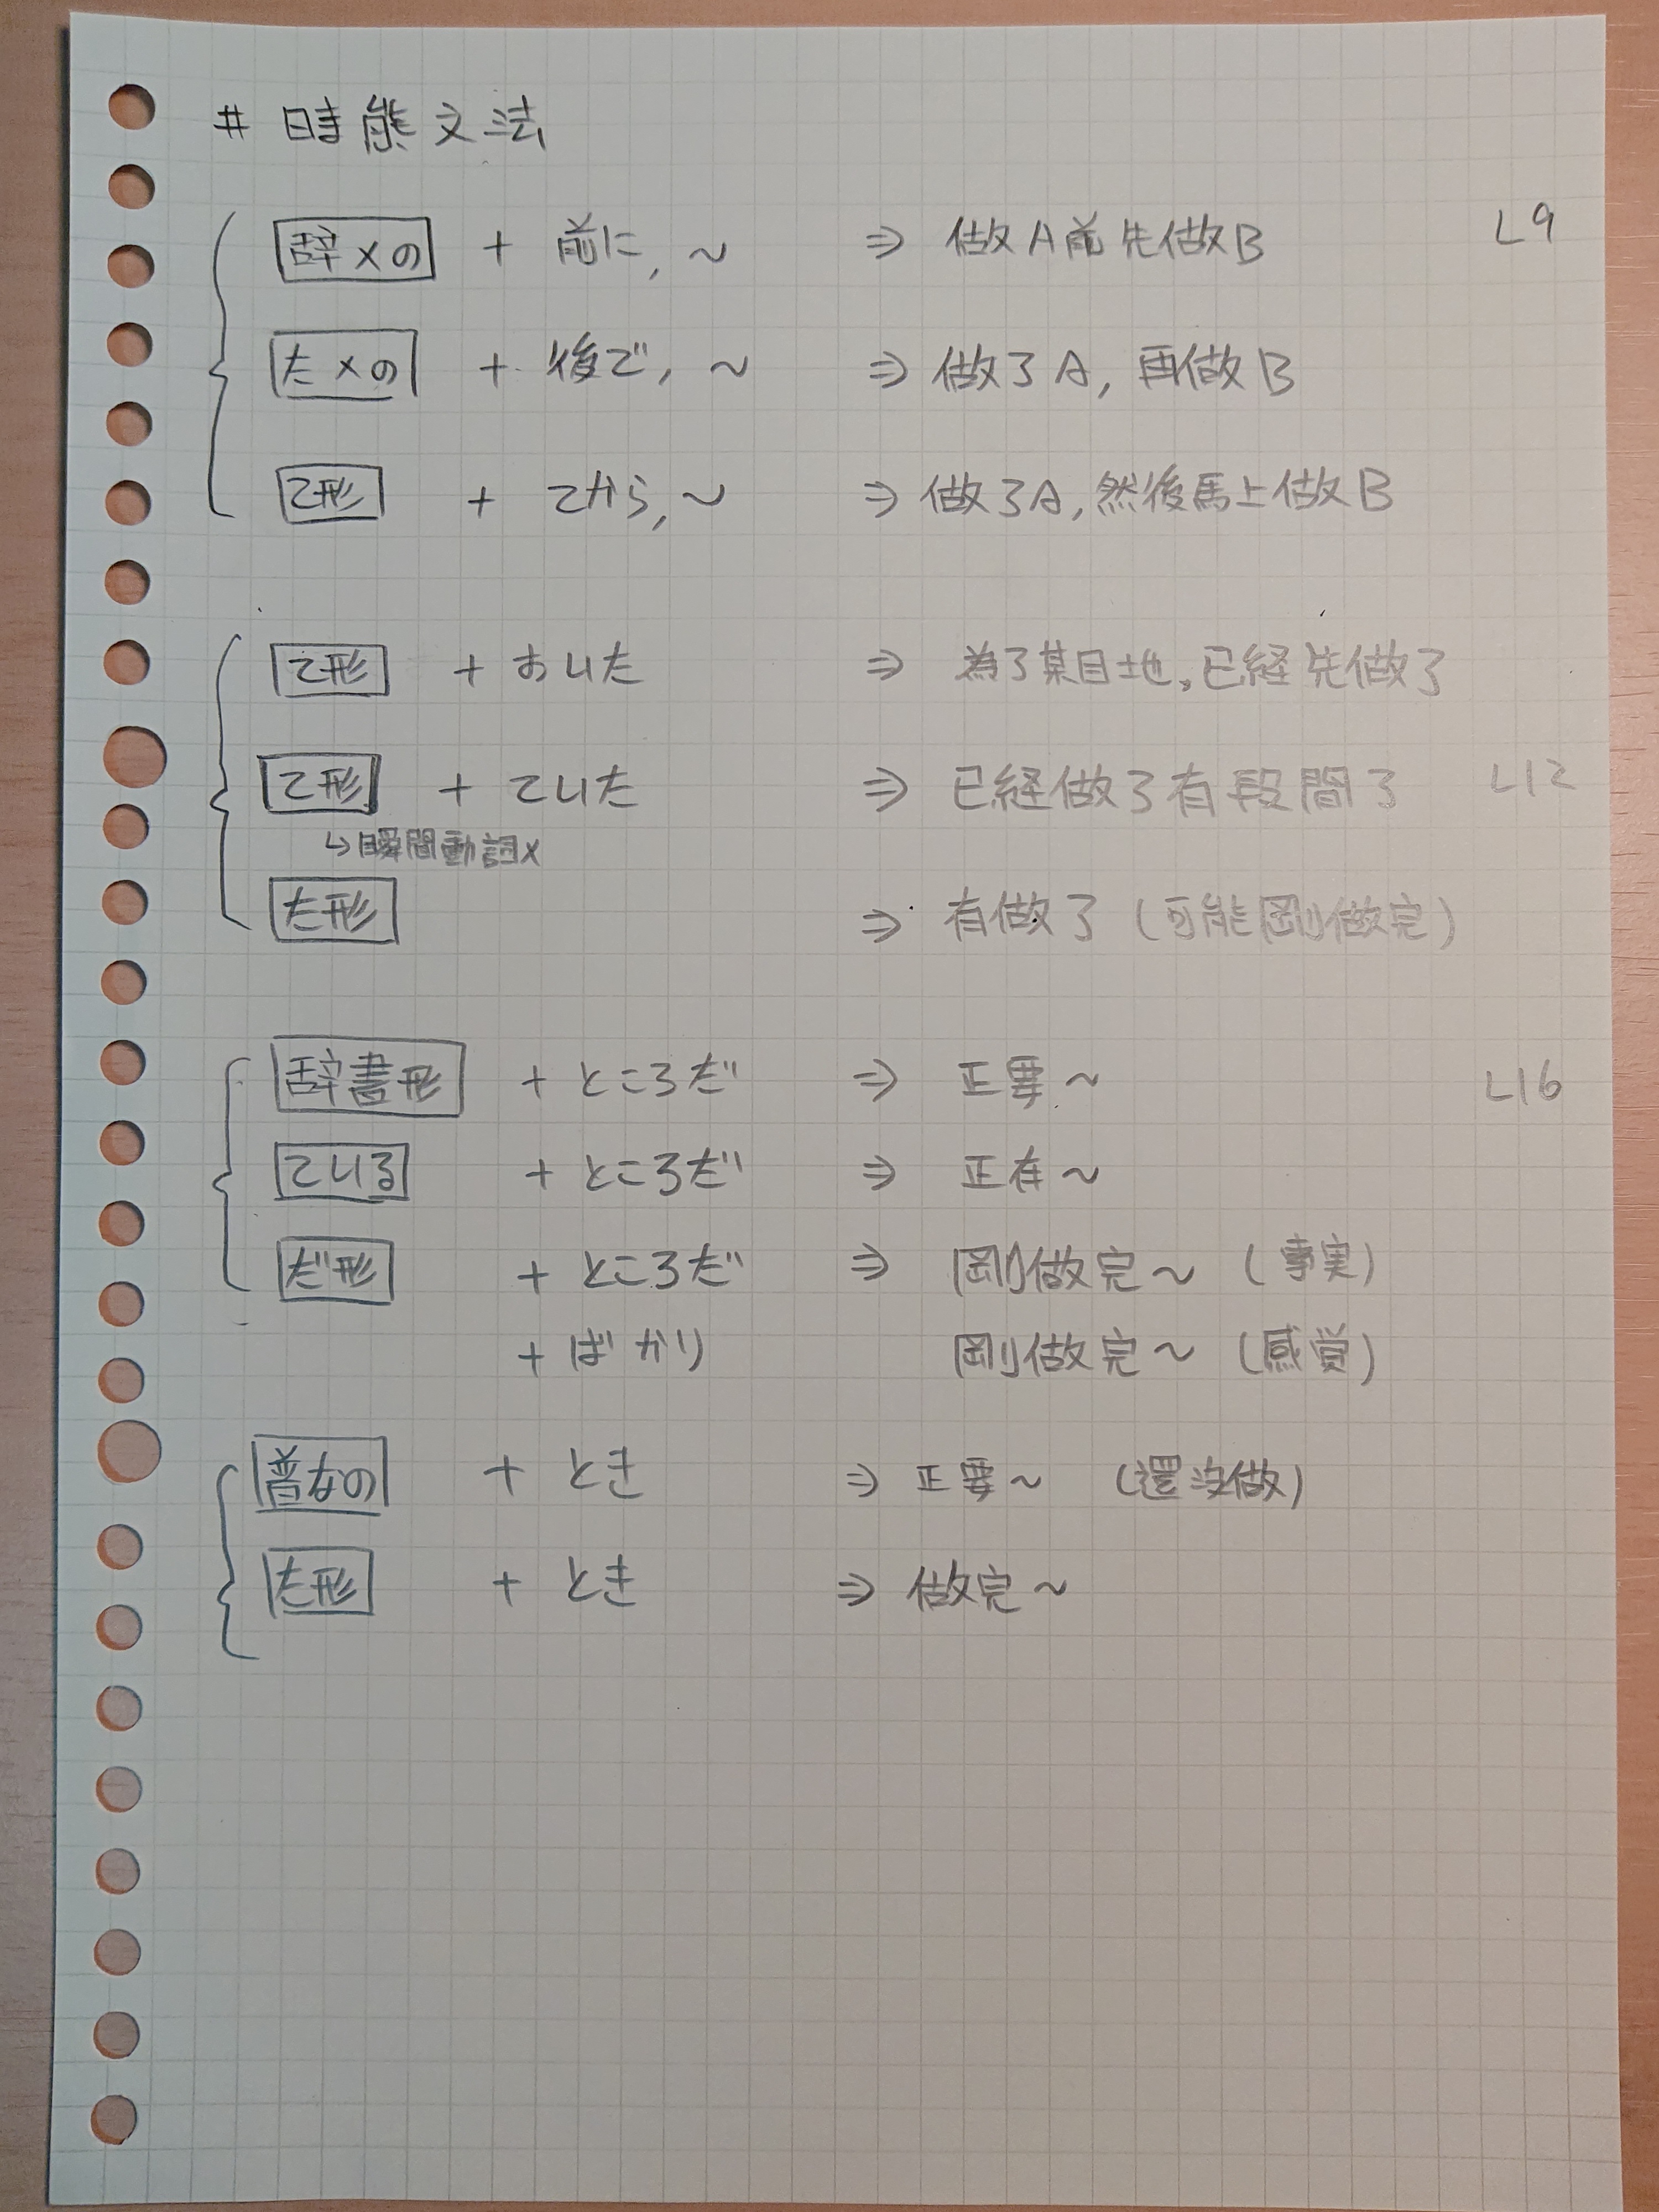 # 時態文法
辞×の + 前に, ~ ⇒ 做A前先做B L9
た×の + 後で, ~ ⇒ 做了A, 再做B
て形 + てから, ~ ⇒ 做了A, 然後馬上做B
て形 + おいた ⇒ 為了某目地, 已経先做了
て形 + ていた ⇒ 已経做了有段間了 L12
↳瞬間動詞×
た形 ⇒ 有做了 (可能剛做完)
辞書形 + ところだ ⇒ 正要~ L16
ている + ところだ ⇒ 正在~
だ形 + ところだ ⇒ 剛做完~ (事実)
+ ばかり 剛做完~ (感覚)
普なの + とき ⇒ 正要~ (還沒做)
た形 + とき ⇒ 做完~